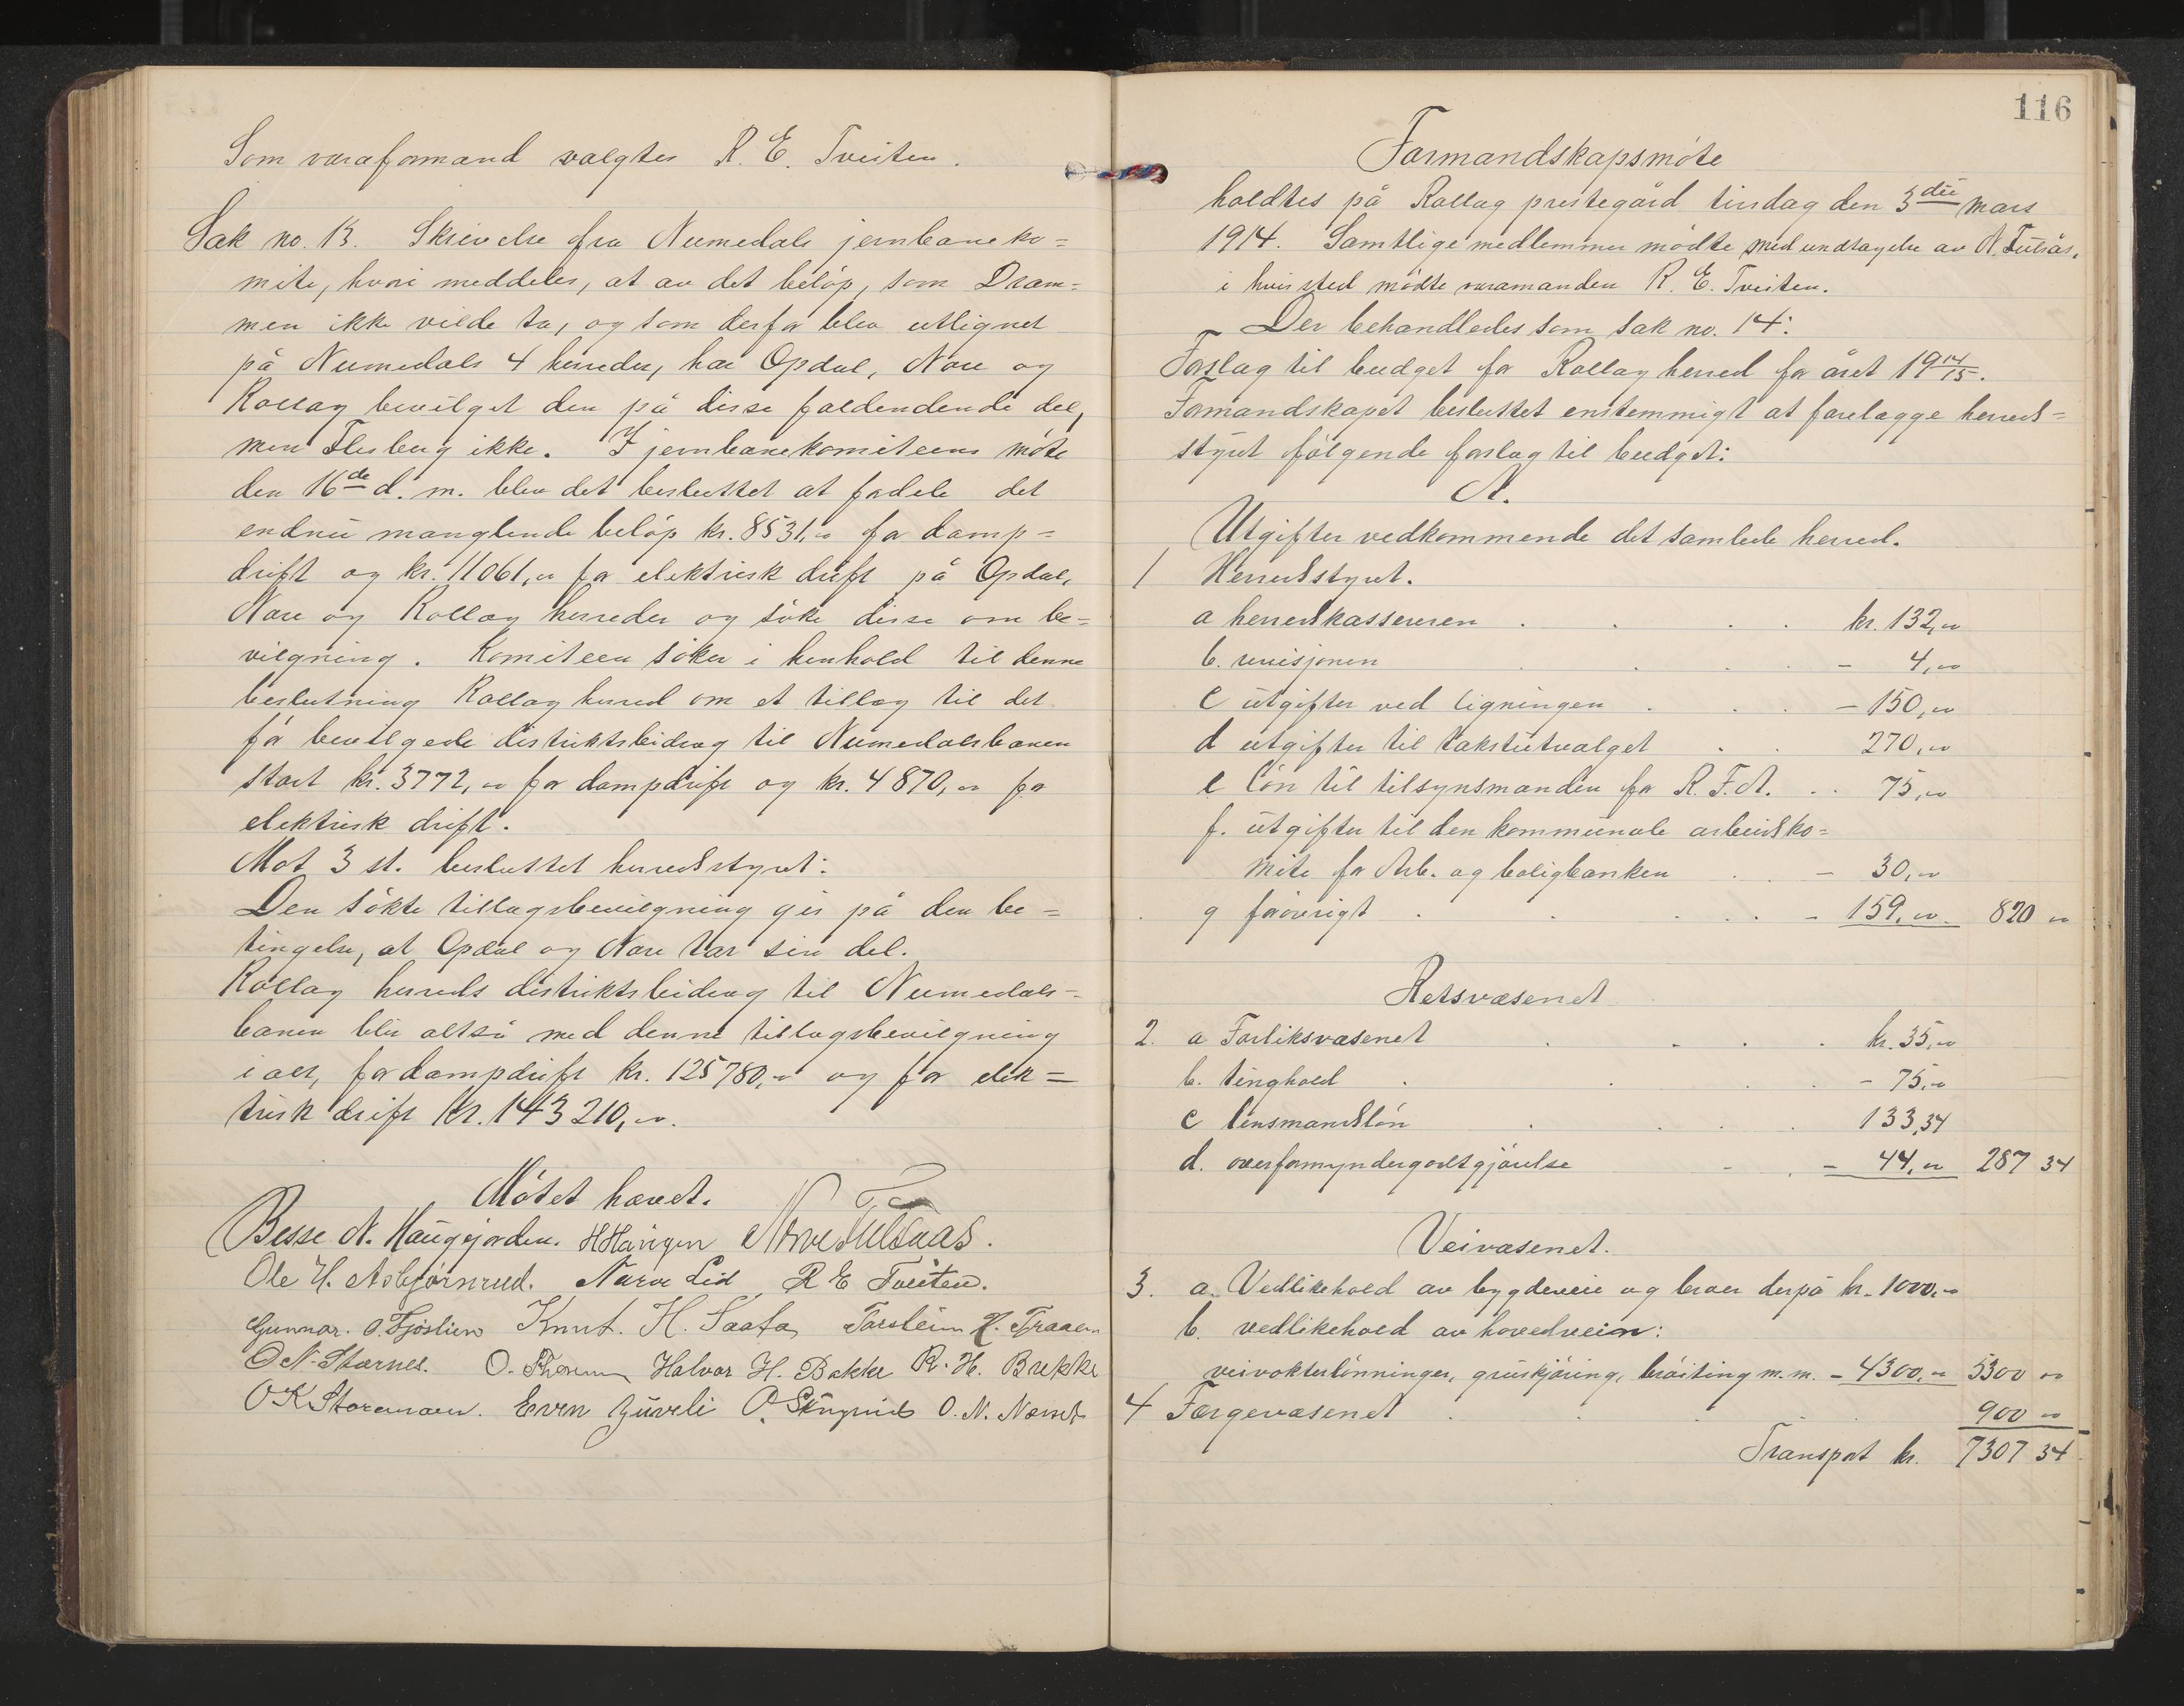 Som varaformand valgtes R. E. Tveiten.
Sak no. 13. Skrivelse fra Numedals jernbaneko=
mite, hvori meddeles, at av det beløp, som Dram=
men ikke vilde ta, og som derfor blev utlignet
på Numedals 4 herreder, har Opdal, Nore og
Rollag bevilget den på disse faldendende del,
men Flesberg ikke. I jernbanekomiteens møte
den 16de d. m. blev det besluttet at fordele det
endnu manglende beløp kr. 8531,00 for damp=
drift og kr. 11061,00 for elektrisk drift på Opdal,
Nore og Rollag herreder og søke disse om be=
vilgning. Komiteen søker i henhold til denne
beslutning Rollag herred om et tillæg til det
før bevilgede distriktsbidrag til Numedalsbanen
stort kr. 3772,00 for dampdrift og kr. 4870,00 for
elektrisk drift.
Mot 3 st. besluttet herredsstyret:
Den søkte tillægsbevilgning gis på den be=
tingelse, at Opdal og Nore tar sin del.
Rollag herreds distriktsbidrag til Numedals=
banen blir altså med denne tillægsbevilgning
i alt, for dampdrift kr. 125780,00 og for elek=
trisk drift kr. 143210,00.
Møtet hævet.
Besse N. Haugjorden. H Haugen Narve Tulsaas.
Ole H. Asbjørnrud. Narve Lid R E Tveiten.
Gunnar. O. Fjøslien Knut. H. Saata Torstein H. Traaen
O N. Stærnes. O. Halvor H. Bakke R. H. Brekke
O K Even Juveli O. N. Næset
116
Formandskapsmøte
holdtes på Rollag prestegård tirsdag den 3die mars
1914. Samtlige medlemmer mødte med undtagelse av N. Tulsås,
i hvis sted mødte varamanden R. E. Tveiten.
Der behandledes som sak no. 14:
Forslag til budget for Rollag herred for året 1914/15.
Formandskapet besluttet enstemmigt at forelægge herreds=
styret følgende forslag til budget:
A.
Utgifter vedkommende det samlede herred.
1 Herredsstyret.
a herredskassereren . . . . kr. 132,00
b. revisjonen . . . . - 4,00
c utgifter ved ligningen . . . - 150,00
d utgifter til takstutvalget . . 270,00
e løn til tilsynsmanden for R. F. A. . . 75,00
f. utgifter til den kommunale arbeidsko=
mite for Arb. og boligbanken . . - 30,00
g forøvrigt . . . . . - 159,00. 820 00
Retsvæsenet
2. a Forliksvæsenet . . . . kr. 35,00
b. tinghold . . . . - 75,00
c lensmandsløn . . . . 133,34
d. overformyndergodtgjørelse . . - 44,00 287 34
Veivæsenet.
3. a. Vedlikehold av bygdeveie og broer derpå kr. 1000,00
b. vedlikehold av hovedveien:
veivokterlønninger, gruskjøring, brøiting m. m. - 4300,00 5300 00
4 Færgevæsenet . . . . 900 00
Transport kr. 7307 34